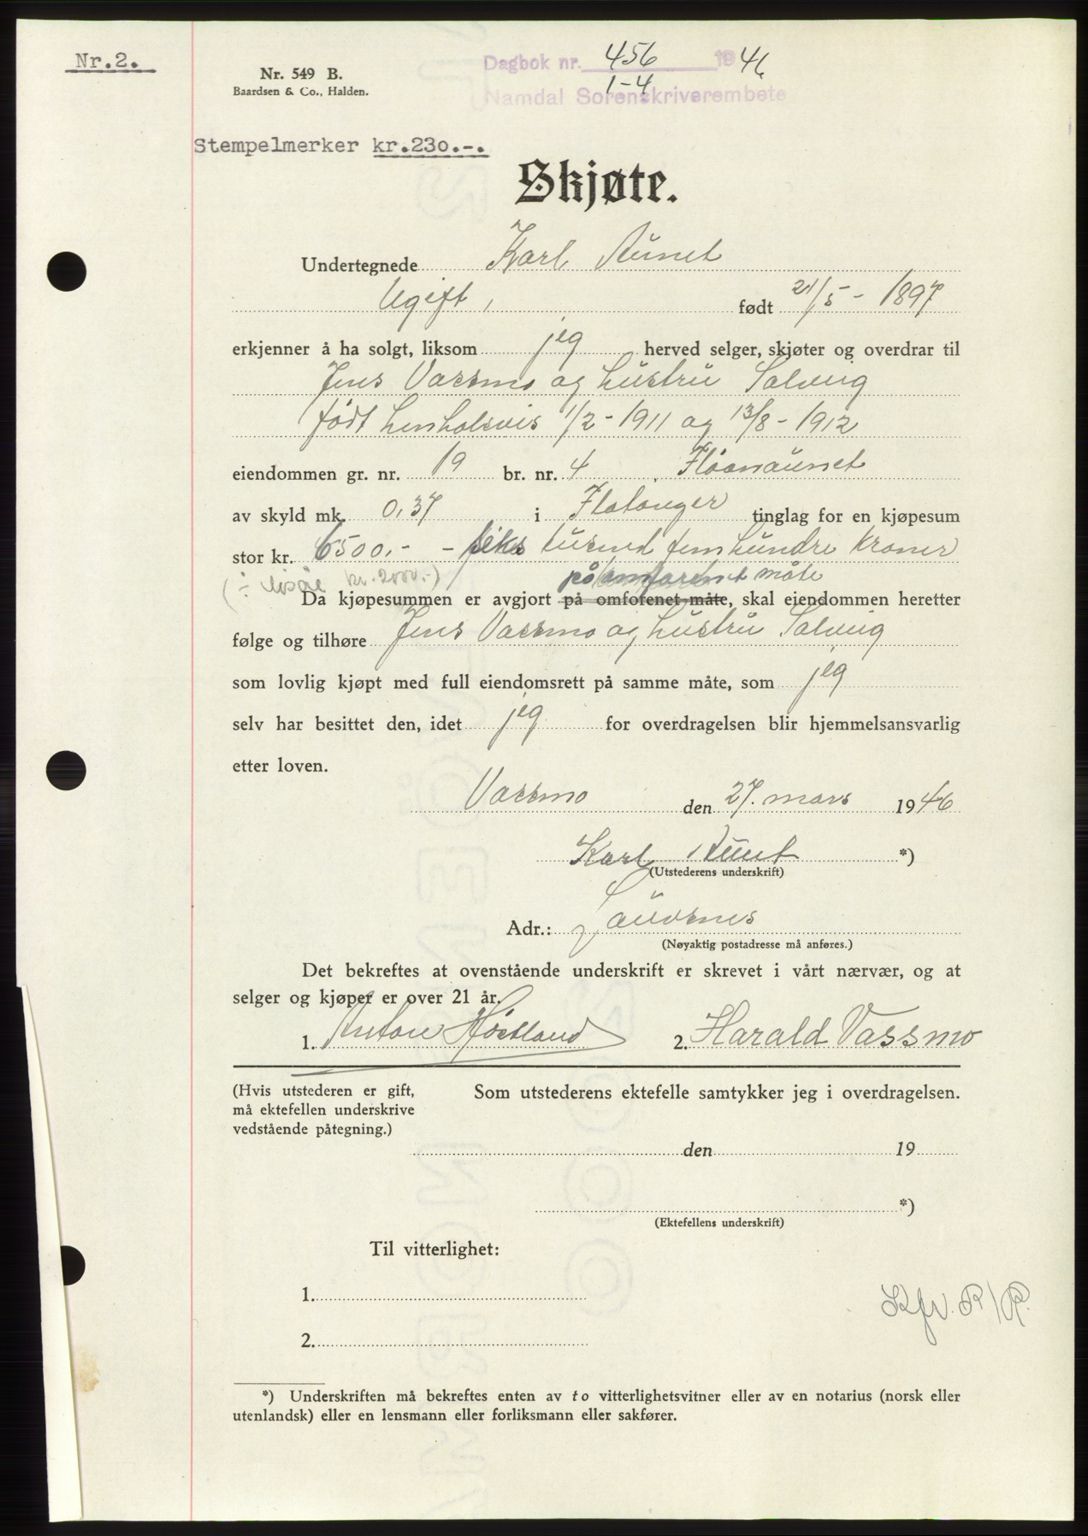 Nr.2.
Nr. 549 B.
Baardsen & Co., Halden.
Dagbok nr. 456 1946
1-4
Namdal Sorenskriverembete
Stempelmerker kr.230.-.
Skjøte.
Undertegnede Karl Aunet
Ugift, født 21/5 - 1897
erkjenner å ha solgt, liksom jeg herved selger, skjøter og overdrar til
Jens Vassmo og hustru Solveig
født henholsvis 1/2 - 1911 og 13/8 - 1912
eiendommen gr. nr. 19 br. nr. 4 Floanaunet
av skyld mk. 0,37 i Flatanger tinglag for en kjøpesum
stor kr. 6500,- - seks tusend fem hundre kroner
(÷ løsøre kr. 2000.-) på omforenet måte
Da kjøpesummen er avgjort på omforenet måte, skal eiendommen heretter
følge og tilhøre Jens Vassmo og hustru Solveig
som lovlig kjøpt med full eiendomsrett på samme måte, som jeg
selv har besittet den, idet jeg for overdragelsen blir hjemmelsansvarlig
etter loven.
Vassmo den 27. mars 1946
Karl Aunet *)
(Utstederens underskrift)
Adr.: Lauvsnes
(Nøyaktig postadresse må anføres.)
Det bekreftes at ovenstående underskrift er skrevet i vårt nærvær, og at
selger og kjøper er over 21 år.
1. Anton Høstland 2. Harald Vassmo
(Hvis utstederen er gift, Som utstederens ektefelle samtykker jeg i overdragelsen.
må ektefellen underskrive
vedstående påtegning.)
den 19
*)
(Ektefellens underskrift)
Til vitterlighet:
1.
2.
Kfr. R/R.
*) Underskriften må bekreftes enten av to vitterlighetsvitner eller av en notarius (norsk eller
utenlandsk) eller en lensmann eller forliksmann eller sakfører.